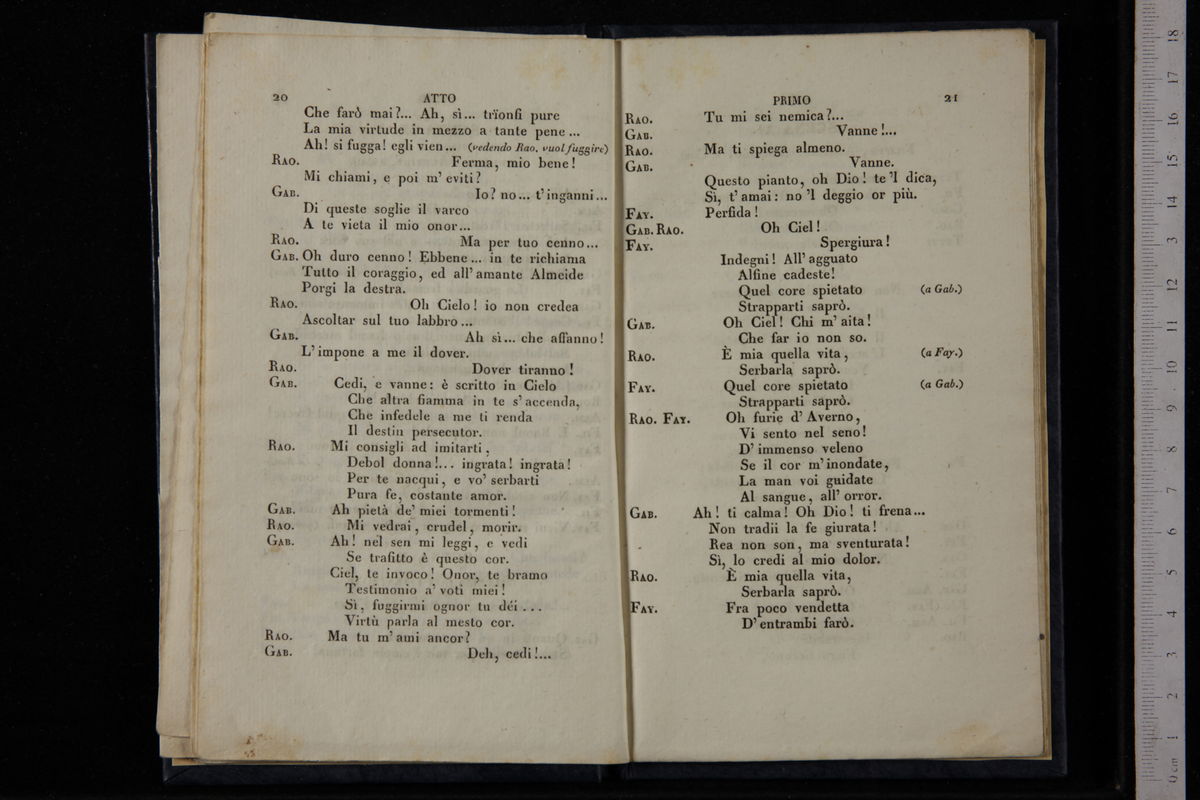 20 ATTO
Che farò mai?... Ah, sì... trïonfi pure
La mia virtude in mezzo a tante pene...
Ah! si fugga! egli vien... (vedendo Rao. vuol fuggire)
Rao. Ferma, mio bene!
Mi chiami, e poi m' eviti?
Gab. Io? no... t' inganni...
Di queste soglie il varco
A te vieta il mio onor...
Rao. Ma per tuo cenno...
Gab. Oh duro cenno! Ebbene... in te richiama
Tutto il coraggio, ed all' amante Almeide
Porgi la destra.
Rao. Oh Cielo! io non credea
Ascoltar sul tuo labbro...
Gab. Ah sì... che affanno!
L' impone a me il dover.
Rao. Dover tiranno!
Gab. Cedi, e vanne: è scritto in Cielo
Che altra fiamma in te s' accenda,
Che infedele a me ti renda
Il destin persecutor.
Rao. Mi consigli ad imitarti,
Debol donna!... ingrata! ingrata!
Per te nacqui, e vo' serbarti
Pura fe, costante amor.
Gab. Ah pietà de' miei tormenti!
Rao. Mi vedrai, crudel, morir.
Gab. Ah! nel sen mi leggi, e vedi
Se trafitto è questo cor.
Ciel, te invoco! Onor, te bramo
Testimonio a' voti miei!
Sì, fuggirmi ognor tu déi...
Virtù parla al mesto cor.
Rao. Ma tu m' ami ancor?
Gab. Deh, cedi!...
PRIMO 21
Rao. Tu mi sei nemica?...
Gab. Vanne!...
Rao. Ma ti spiega almeno.
Gab. Vanne.
Questo pianto, oh Dio! te 'l dica,
Sì, t' amai: no 'l deggio or più.
Fay. Perfida!
Gab. Rao. Oh Ciel!
Fay. Spergiura!
Indegni! All' agguato
Alfine cadeste!
Quel core spietato (a Gab.)
Strapparti saprò.
Gab. Oh Ciel! Chi m' aita!
Che far io non so.
Rao. È mia quella vita, (a Fay.)
Serbarla saprò.
Fay. Quel core spietato (a Gab.)
Strapparti saprò.
Rao. Fay. Oh furie d' Averno,
Vi sento nel seno!
D' immenso veleno
Se il cor m' inondate,
La man voi guidate
Al sangue, all' orror.
Gab. Ah! ti calma! Oh Dio! ti frena...
Non tradii la fe giurata!
Rea non son, ma sventurata!
Sì, lo credi al mio dolor.
Rao. È mia quella vita,
Serbarla saprò.
Fay. Fra poco vendetta
D' entrambi farò.
0 cm 1 2 3 4 5 6 7 8 9 10 11 12 13 14 15 16 17 18